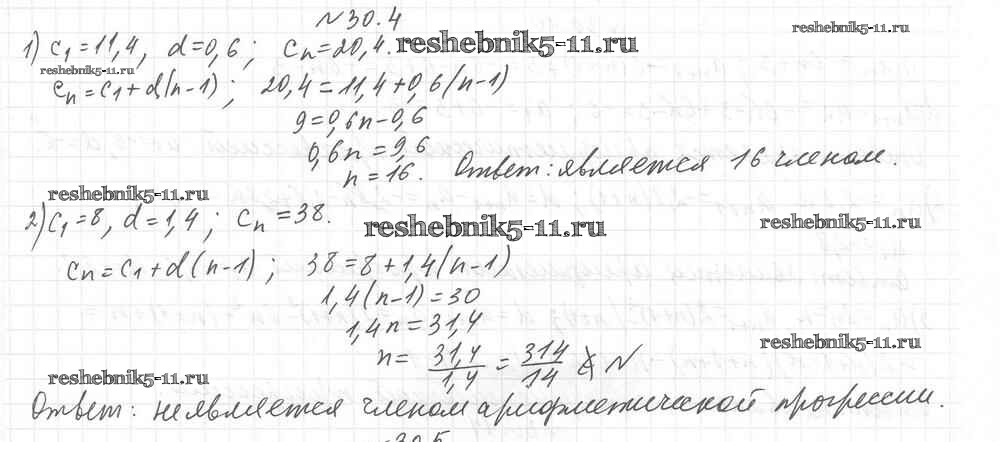 №30.4
1) c₁=11,4, d=0,6; cₙ=20,4. reshebnik5-11.ru
reshebnik5-11.ru
reshebnik5-11.ru
cₙ=c₁+d(n-1); 20,4=11,4+0,6(n-1)
9=0,6n-0,6
0,6n=9,6
n=16. Ответ: является 16 членом.
reshebnik5-11.ru
2) c₁=8, d=1,4; cₙ=38. reshebnik5-11.ru reshebnik5-11.ru
cₙ=c₁+d(n-1); 38=8+1,4(n-1)
1,4(n-1)=30
1,4n=31,4
reshebnik5-11.ru
n=31,4/1,4=314/14 ∉ N
reshebnik5-11.ru
Ответ: не является членом арифметической прогрессии.